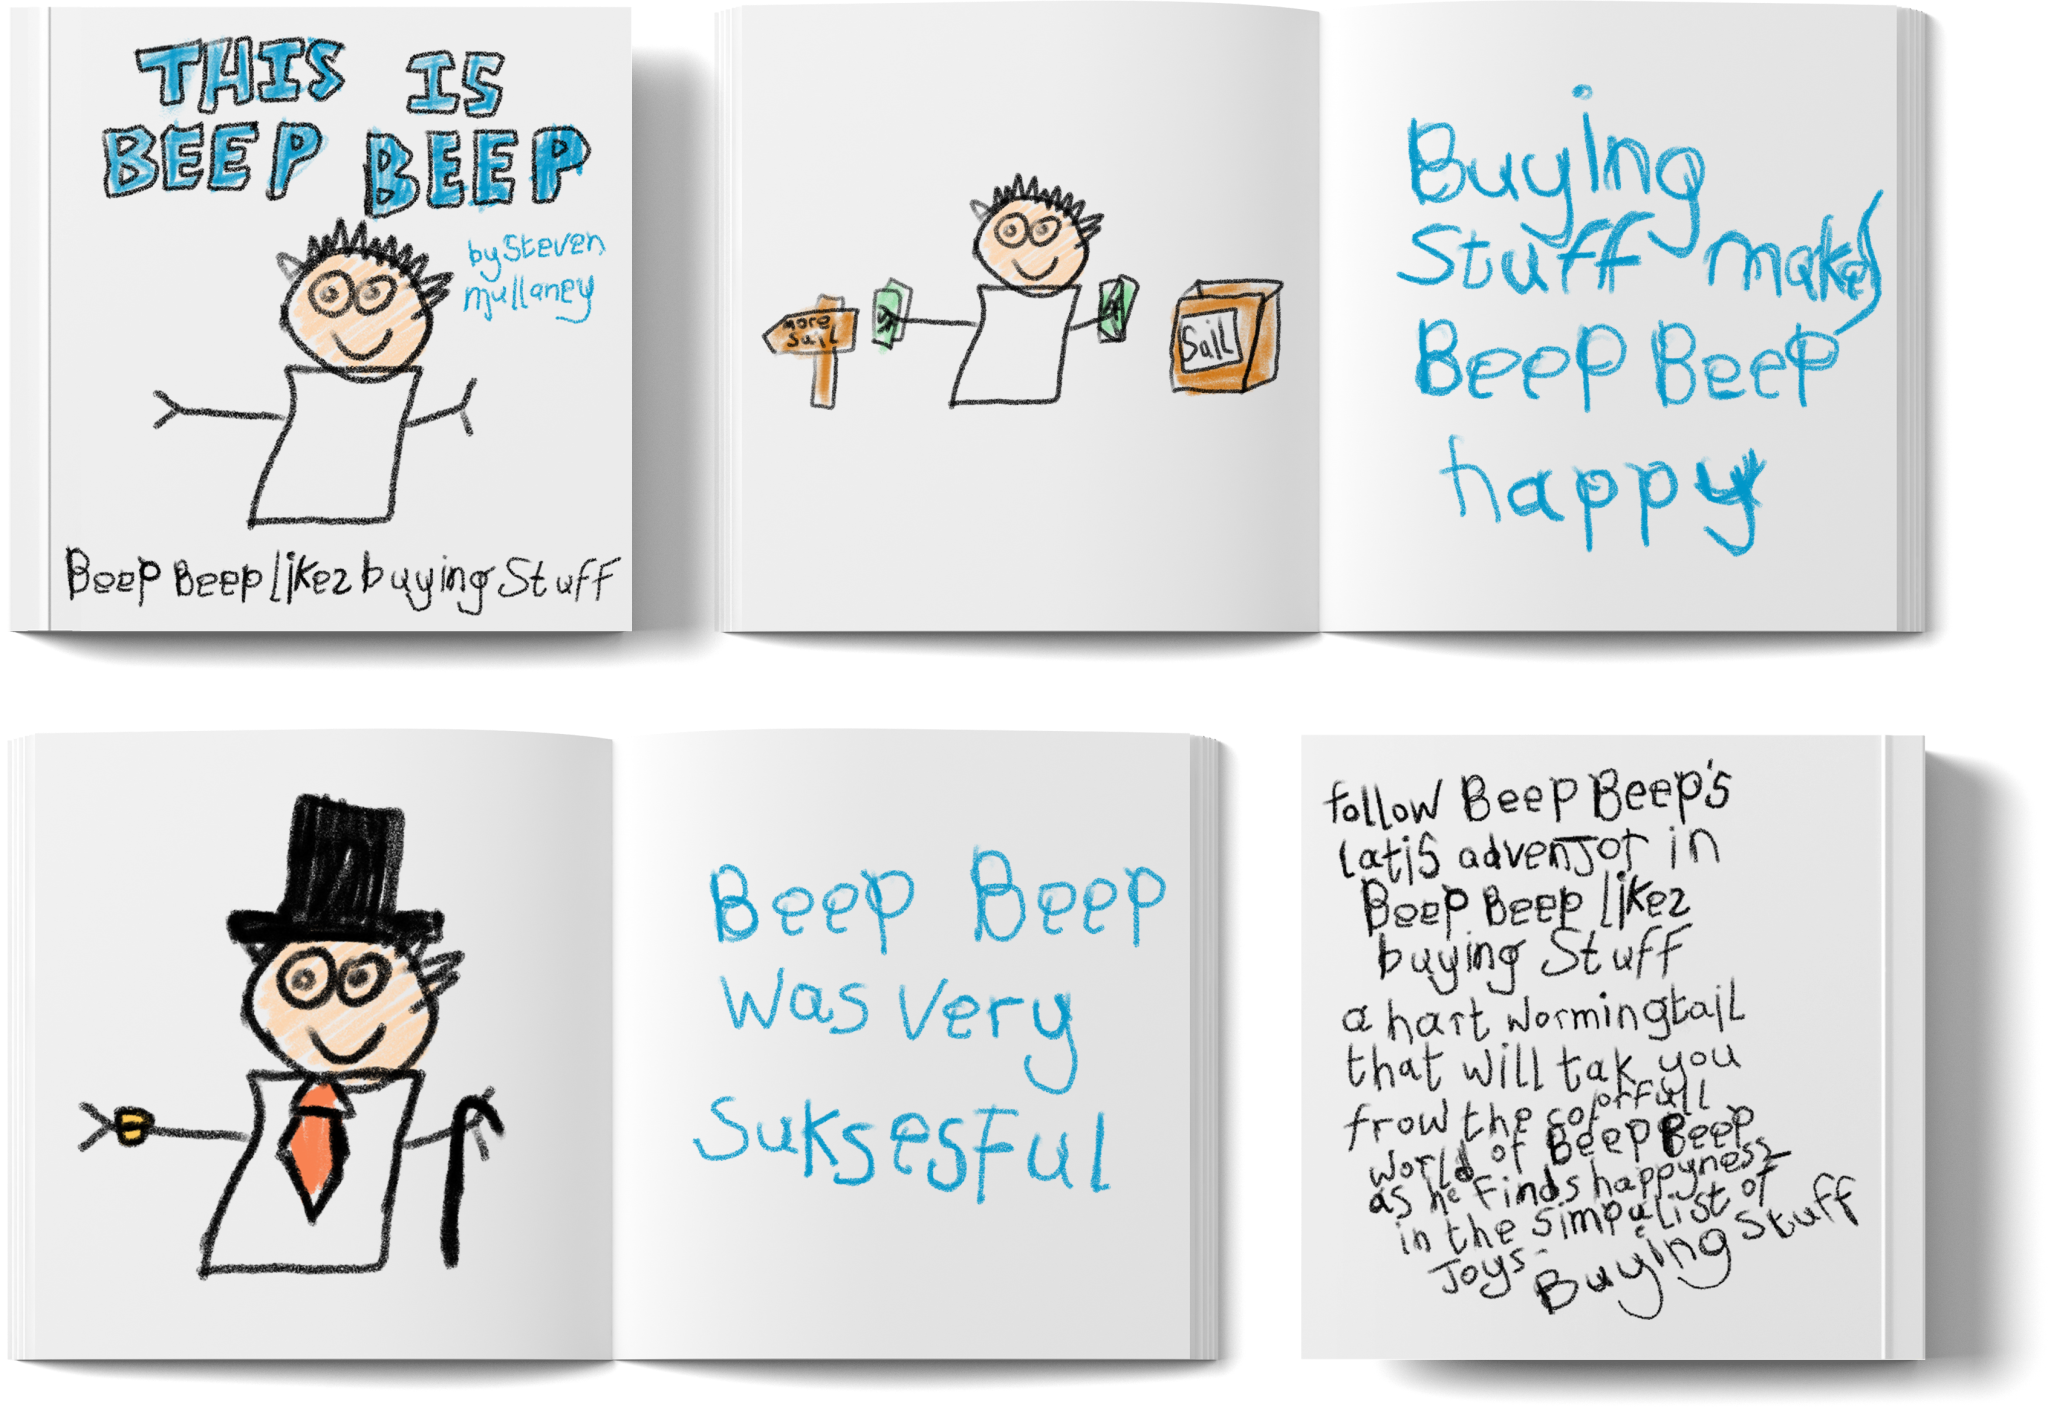 THIS IS
BEEP BEEP
by Steven
mullaney
Beep Beep likez buying Stuff
more
sail
Sail
Buying
Stuff makes
Beep Beep
happy
Beep Beep
was very
suksesful
follow Beep Beep's
latis advenJor in
Beep Beep likez
buying Stuff
a hart wormingtail
that will tak you
frow the colorfull
world of Beep Beep
as he finds happyness
in the simpulist of
Joys-
Buying Stuff